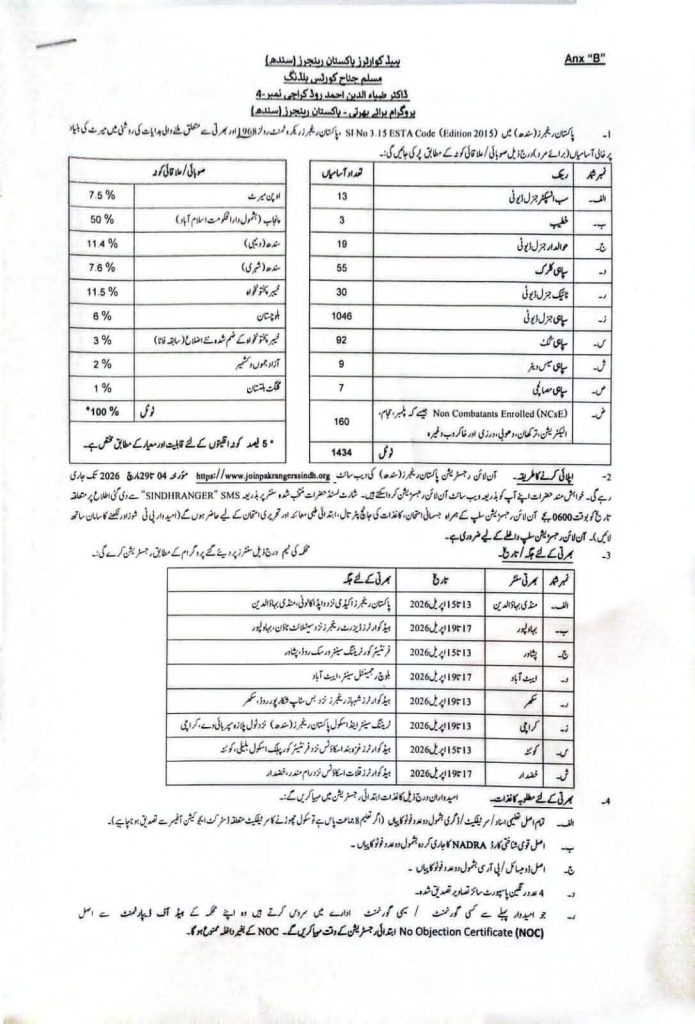 Anx "B"
ہیڈ کوارٹرز پاکستان رینجرز (سندھ)
مسلم جناح کورٹس بلڈنگ
ڈاکٹر ضیاء الدین احمد روڈ کراچی نمبر-4
پروگرام برائے بھرتی - پاکستان رینجرز (سندھ)
1- پاکستان رینجرز (سندھ) میں SI No 3.15 ESTA Code (Edition 2015)، پاکستان رینجرز ریکروٹمنٹ رولز 1968 اور بھرتی سے متعلق ملنے والی ہدایات کی روشنی میں میرٹ کی بنیاد
پر خالی آسامیاں (برائے مرد) درج ذیل صوبائی/علاقائی کوٹہ کے مطابق پر کی جائیں گی:۔
نمبر شمار رینک تعداد آسامیاں
الف۔ سب انسپکٹر جنرل ڈیوٹی 13
ب۔ خطیب 3
ج۔ حوالدار جنرل ڈیوٹی 19
د۔ سپاہی کلرک 55
ر۔ نائیک جنرل ڈیوٹی 30
ز۔ سپاہی جنرل ڈیوٹی 1046
س۔ سپاہی کک 92
ش۔ سپاہی میس ویٹر 9
ص۔ سپاہی مصالچی 7
ض۔ Non Combatants Enrolled (NCsE) جیسے کہ پلمبر، حجام، 160
الیکٹریشن، ترکھان، دھوبی، درزی اور خاکروب وغیرہ
ٹوٹل 1434
صوبائی/علاقائی کوٹہ
اوپن میرٹ 7.5 %
پنجاب (بشمول دارالحکومت اسلام آباد) 50 %
سندھ (دیہی) 11.4 %
سندھ (شہری) 7.6 %
خیبر پختونخواہ 11.5 %
بلوچستان 6 %
خیبر پختونخواہ کے ضم شدہ نئے اضلاع (سابقہ فاٹا) 3 %
آزاد جموں و کشمیر 2 %
گلگت بلتستان 1 %
ٹوٹل 100 %*
* 5 فیصد کوٹہ اقلیتوں کے لئے قابلیت اور معیار کے مطابق مختص ہے۔
2- اپلائی کرنے کا طریقہ۔ آن لائن رجسٹریشن پاکستان رینجرز (سندھ) کی ویب سائٹ https://www.joinpakrangerssindh.org مورخہ 04 تا 29 مارچ 2026 تک جاری
رہے گی۔ خواہش مند حضرات اپنے آپ کو بذریعہ ویب سائٹ آن لائن رجسٹریشن کروا سکتے ہیں۔ شارٹ لسٹڈ حضرات منتخب شدہ سنٹر پر بذریعہ "SINDHRANGER" SMS سے دی گئی اطلاع پر متعلقہ
تاریخ کو بوقت 0600 بجے آن لائن رجسٹریشن سلپ کے ہمراہ جسمانی امتحان، کاغذات کی جانچ پڑتال، ابتدائی طبی معائنہ اور تحریری امتحان کے لیے حاضر ہوں گے (امیدوار پی ٹی شوز اور لکھنے کا سامان ساتھ
لائیں)۔ آن لائن رجسٹریشن سلپ داخلے کے لیے ضروری ہے۔
3- بھرتی کے لئے جگہ/تاریخ۔ محکمہ کی ٹیم درج ذیل سنٹرز پر دیئے گئے پروگرام کے مطابق رجسٹریشن کرے گی:۔
نمبر شمار بھرتی سنٹر تاریخ بھرتی کے لئے جگہ
الف۔ منڈی بہاؤالدین 13 تا 15 اپریل 2026 پاکستان رینجرز اکیڈمی نزد واپڈا کالونی، منڈی بہاؤالدین
ب۔ بہاولپور 17 تا 19 اپریل 2026 ہیڈ کوارٹرز ڈیزرٹ رینجرز نزد سیٹلائٹ ٹاؤن، بہاولپور
ج۔ پشاور 13 تا 15 اپریل 2026 فرنٹیئر کور ٹریننگ سینٹر ورسک روڈ، پشاور
د۔ ایبٹ آباد 17 تا 19 اپریل 2026 بلوچ رجمینٹل سینٹر، ایبٹ آباد
ر۔ سکھر 13 تا 19 اپریل 2026 ہیڈ کوارٹرز شہباز رینجرز نزد بس سٹاپ شکارپور روڈ، سکھر
ز۔ کراچی 13 تا 19 اپریل 2026 ٹریننگ سینٹر اینڈ اسکول پاکستان رینجرز (سندھ) نزد ٹول پلازہ سپر ہائی وے، کراچی
س۔ کوئٹہ 13 تا 15 اپریل 2026 ہیڈ کوارٹرز غزہ بند اسکاؤٹس نزد فرنٹیئر کور پبلک اسکول بلیلی، کوئٹہ
ش۔ خضدار 17 تا 19 اپریل 2026 ہیڈ کوارٹرز قلات اسکاؤٹس نزد رام مندر، خضدار
4- بھرتی کے لئے مطلوبہ کاغذات۔ امیدواران درج ذیل کاغذات ابتدائی رجسٹریشن میں مہیا کریں گے:۔
الف۔ تمام اصل تعلیمی اسناد/سرٹیفکیٹ/ڈگری بشمول دو عدد فوٹو کاپیاں (اگر تعلیم 8 جماعت پاس ہے تو سکول چھوڑنے کا سرٹیفکیٹ متعلقہ ڈسٹرکٹ ایجوکیشن آفیسر سے تصدیق ہونا چاہیے)۔
ب۔ اصل قومی شناختی کارڈ NADRA کا جاری کردہ بشمول دو عدد فوٹو کاپیاں۔
ج۔ اصل ڈومیسائل/پی آر سی بشمول دو عدد فوٹو کاپیاں۔
د۔ 4 عدد رنگین پاسپورٹ سائز تصاویر تصدیق شدہ۔
ر۔ جو امیدوار پہلے سے کسی گورنمنٹ / سیمی گورنمنٹ ادارے میں سروس کرتے ہیں وہ اپنے محکمہ کے ہیڈ آف ڈیپارٹمنٹ سے اصل
No Objection Certificate (NOC) ابتدائی رجسٹریشن کے وقت مہیا کریں گے۔ NOC کے بغیر داخلہ ممنوع ہوگا۔